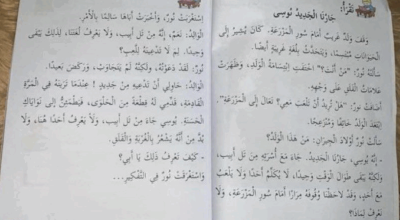 نَقْرَأُ: جَارُنَا الْجَدِيدُ نُوسِي
وَقَفَ وَلَدٌ غَرِيبٌ أَمَامَ سُورِ الْمَزْرَعَةِ. كَانَ يُشِيرُ إِلَى
الْحَيَوَانَاتِ مُبْتَسِمًا، وَيَتَحَدَّثُ بِلُغَةٍ غَرِيبَةٍ أَيْضًا.
سَأَلَتْهُ نُورُ: "مَنْ أَنْتَ؟" اخْتَفَتِ ابْتِسَامَةُ الْوَلَدِ، وَظَهَرَتْ
عَلَامَاتُ الْقَلَقِ عَلَى وَجْهِهِ.
أَضَافَتْ نُورُ: "هَلْ تُرِيدُ أَنْ تَلْعَبَ مَعِي؟ تَعَالَ إِلَى الْمَزْرَعَةِ".
ابْتَعَدَ الْوَلَدُ خَائِفًا وَمُنْزَعِجًا.
سَأَلَتْ نُورُ أَوْلَادَ الْجِيرَانِ: مَنْ هَذَا الْوَلَدُ؟
- إِنَّهُ نُوسِي، جَارُنَا الْجَدِيدُ. جَاءَ مَعَ أُسْرَتِهِ مِنْ تَل أَبِيب،
وَلَكِنَّهُ يَبْقَى طَوَالَ الْوَقْتِ وَحِيدًا، لَا يُكَلِّمُ أَحَدًا وَلَا يَلْعَبُ
مَعَ أَحَدٍ، وَقَدْ لَاحَظْنَا وُقُوفَهُ مِرَارًا أَمَامَ سُورِ الْمَزْرَعَةِ، وَلَا
نَعْرِفُ لِمَاذَا؟
اسْتَغْرَبَتْ نُورُ، وَأَخْبَرَتْ أَبَاهَا سَالِمًا بِالْأَمْرِ.
الْوَالِدُ: نَعَمْ، إِنَّهُ مِنْ تَل أَبِيب، وَلَا يَعْرِفُ لُغَتَنَا، لِذَلِكَ يَبْقَى
وَحِيدًا. لِمَ لَا تَدْعِينَهُ لِلَّعِبِ؟
نُورُ: لَقَدْ دَعَوْتُهُ، وَلَكِنَّهُ لَمْ يَتَجَاوَبْ، وَرَكَضَ بَعِيدًا.
الْوَالِدُ: حَاوِلِي أَنْ تَدْعِيهِ مِنْ جَدِيدٍ! عِنْدَمَا تَرَيْنَهُ فِي الْمَرَّةِ
الْقَادِمَةِ، قَدِّمِي لَهُ قِطْعَةً مِنَ الْحَلْوَى، فَيَطْمَئِنَّ إِلَى نَوَايَاكِ
الْحَسَنَةِ. نُوسِي جَاءَ مِنْ تَل أَبِيب، وَلَا يَعْرِفُ أَحَدًا هُنَا، وَلَا
بُدَّ مِنْ أَنَّهُ يَشْعُرُ بِالْغُرْبَةِ وَالْقَلَقِ.
- كَيْفَ تَعْرِفُ ذَلِكَ يَا أَبِي؟
وَاسْتَغْرَقَتْ نُورُ فِي التَّفْكِيرِ...